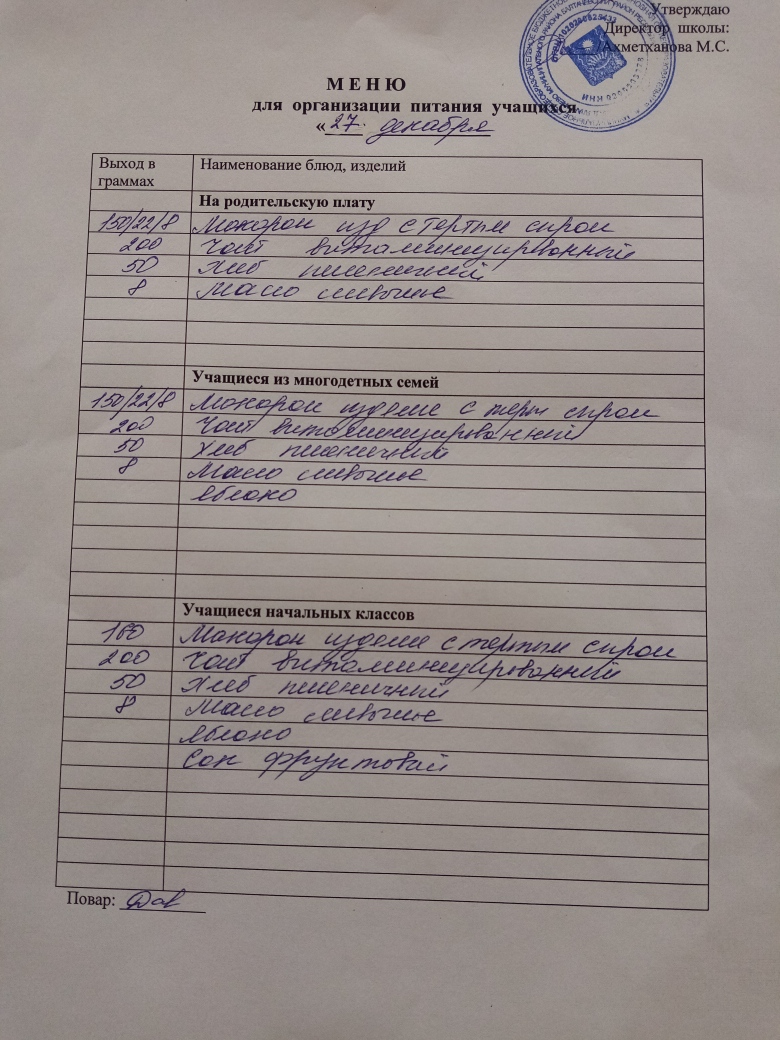 Утверждаю
Директор школы:
Ахметханова М.С.
М Е Н Ю
для организации питания учащихся
«27. декабря
Выход в граммах Наименование блюд, изделий
На родительскую плату
150/22/8 Макарон изд с тертым сыром
200 Чай витаминизированный
50 Хлеб пшеничный
8 Масло сливочное
Учащиеся из многодетных семей
150/22/8 Макарон изделие с терт сыром
200 Чай витаминизированный
50 Хлеб пшеничный
8 Масло сливочное
Яблоко
Учащиеся начальных классов
160 Макарон изделие с тертым сыром
200 Чай витаминизированный
50 Хлеб пшеничный
8 Масло сливочное
Яблоко
Сок фруктовый
Повар: